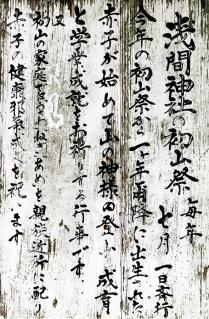 浅間神社の初山祭 毎年
七月一日斉行
今年の初山祭から一ヶ年以降に出生された
赤子が始めて山の神様に登り成育
と学業成就をお祷りする行事です。
又
初山の家庭でとあめを親族近所に配り
赤子の健康邪気ばらを祝います